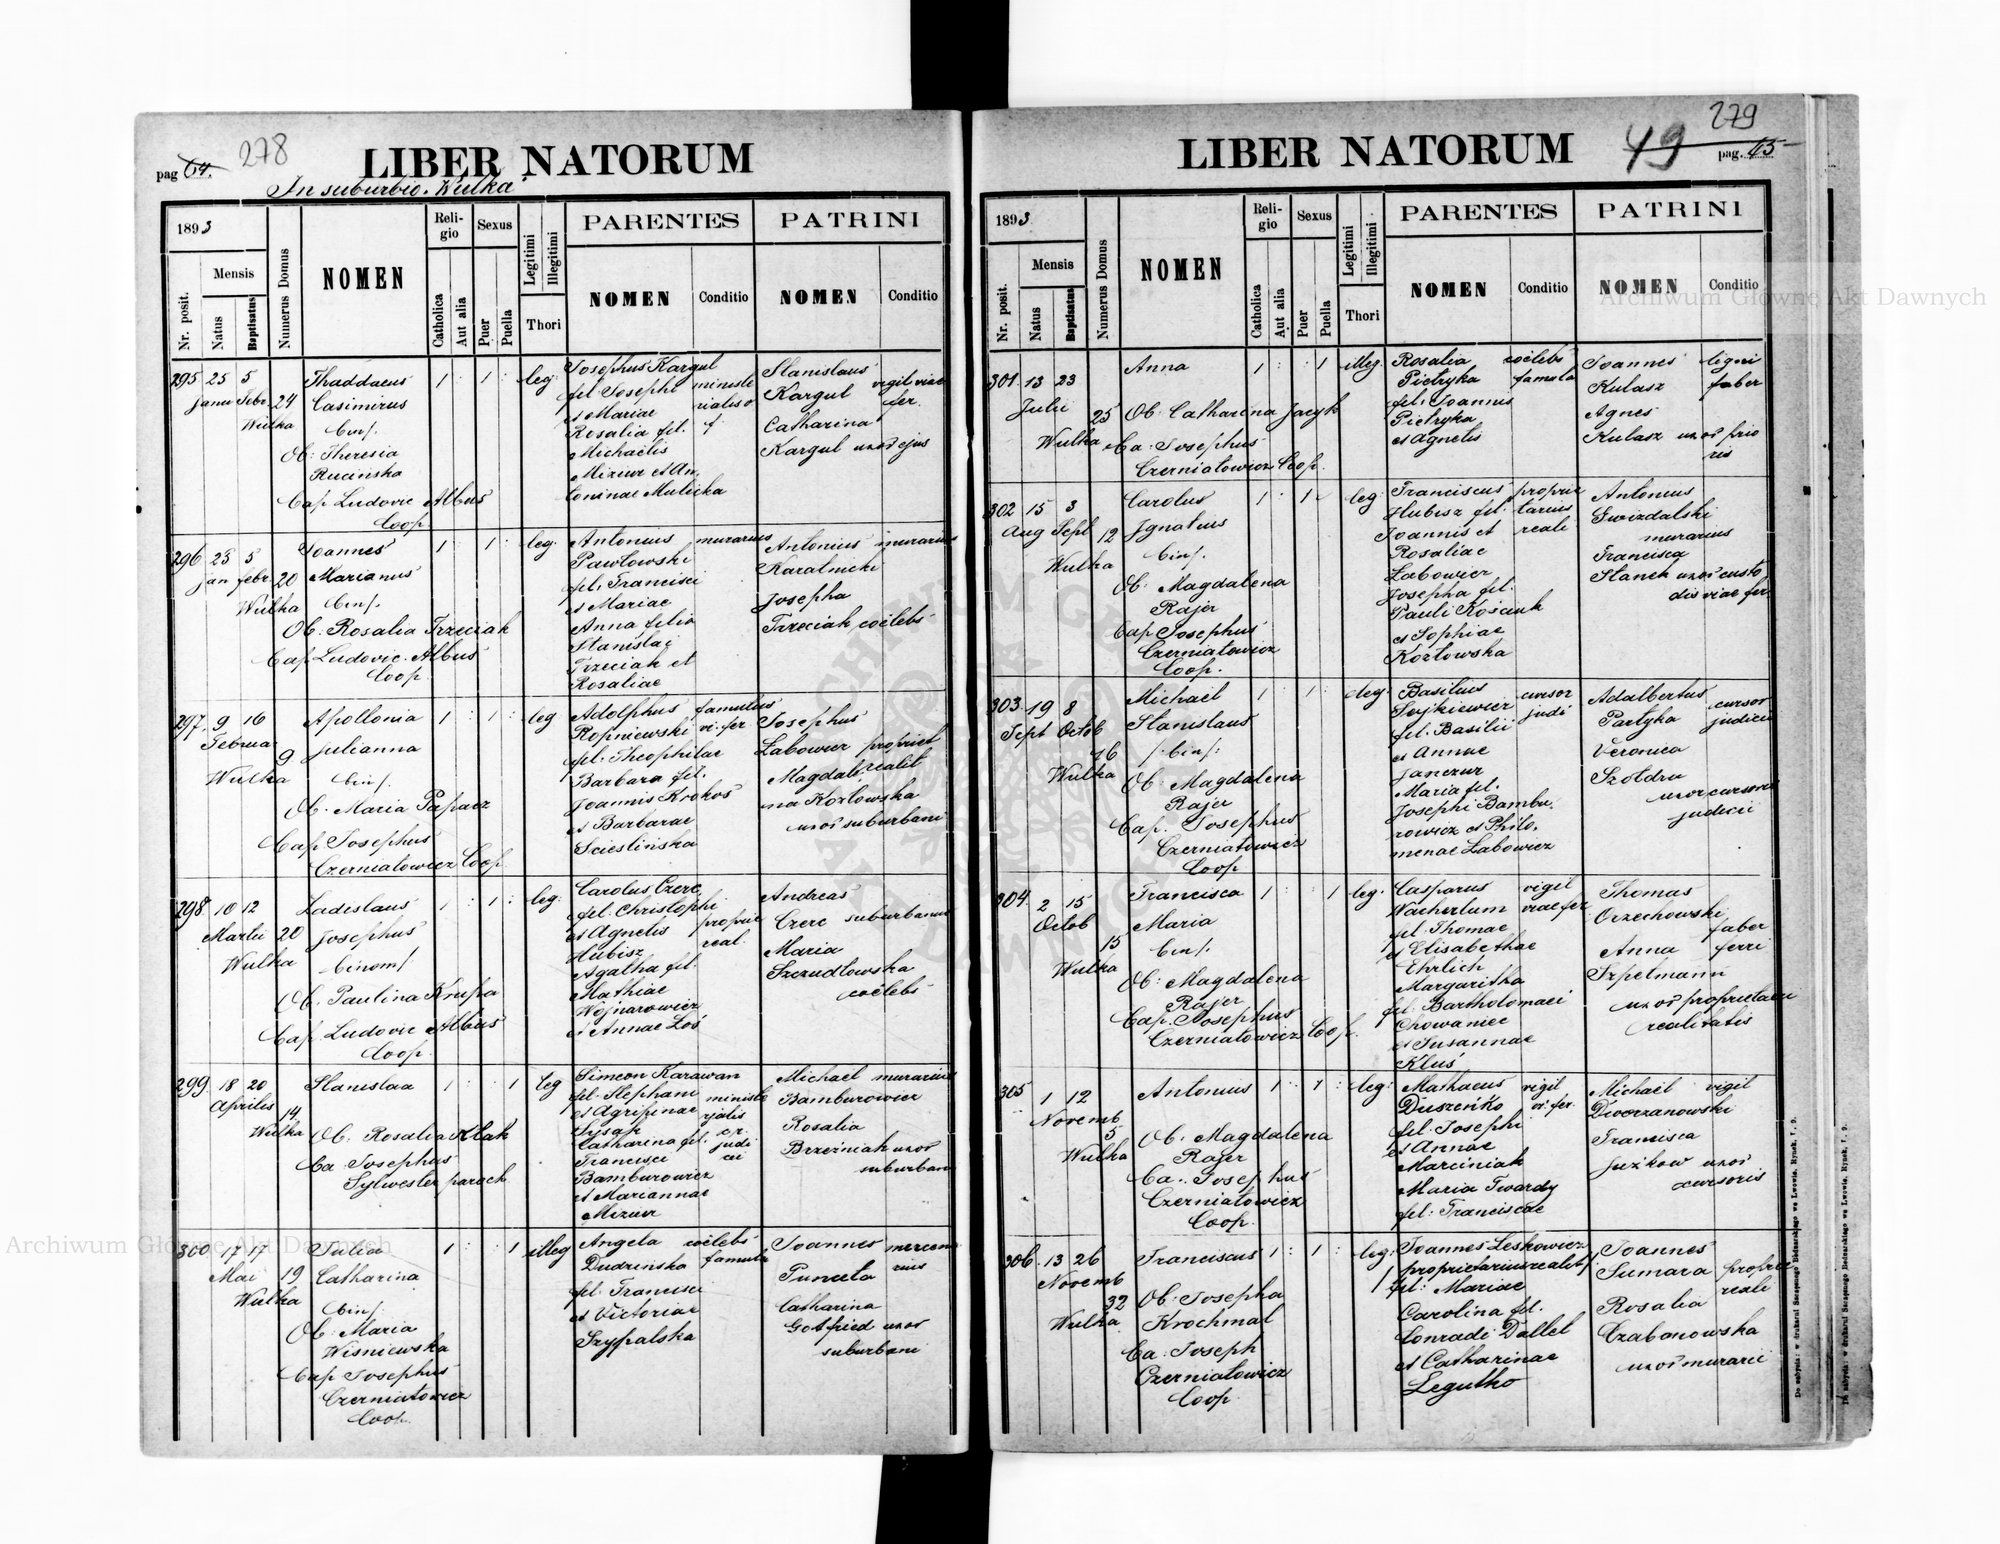 278
pag 64.
LIBER NATORUM
In suburbio. Wulka
1893
Nr. posit.
Mensis
Natus
Baptisatus
Numerus Domus
NOMEN
Reli-
gio
Catholica
Aut alia
Sexus
Puer
Puella
Legitimi
Illegitimi
Thori
PARENTES
NOMEN
Conditio
PATRINI
NOMEN
Conditio
295 25 5
Janu Febr. 24
Wulka
Thaddaeus
Casimirus
bin/.
Ob: Theresia
Rucińska
Cap Ludovic Albus
Coop.
1 : 1 :
leg
Josephus Kargul
fil. Josephi
et Mariae
Rosalia fil.
Michaelis
Miziur et An,
toninae Mulicka
Stanislaus
Kargul
vigil viae
fer.
Catharina
Kargul uxor ejus
296 23 5
jan febr. 20
Wulka
Joannes
Marianus
bin/.
Ob. Rosalia Trzeciak
Cap Ludovic. Albus
Coop.
1 : 1 :
leg.
Antonius murarius
Pawłowski
fil. Francisci
et Mariae
Anna filia
Stanislai
Trzeciak et
Rosaliae
Antonius murarius
Karalnicki
Josepha
Trzeciak coelebs
297. 9 16
Februa
9
Wulka
Apollonia
Julianna
bin/.
Ob. Maria Papacz
Cap Josephus
Czerniatowicz Coop.
1 : 1 :
leg
Adolphus famulus
Ropniewski vi. fer
fil. Theophilae
Barbara fil.
Joannis Krokos
et Barbarae
Scieslińska
Josephus
Łabowicz propriet
Magdale realit
na Kozłowska
uxor suburbani
298. 10 12
Martii 20
Wulka
Ladislaus
Josephus
binom/.
Ob. Paulina Krupa
Cap. Ludovic Albus
Coop.
1 : 1 :
leg.
Carolus Czerc
fil. Christophi
et Agnetis
Hubisz
proprie
real.
Agatha fil.
Mathiae
Wojnarowicz
et Annae Łoś
Andreas
Czerc suburbanus
Maria
Szczudłowska
coelebs
299. 18 20
Aprilis
14
Wulka
Stanislaa
Ob. Rosalia Kłak
Ca Josephus
Sylwester paroch.
1 : : 1
leg
Simeon Karawan
fil. Stephani
et Agripinae
Catharina fil.
Francisci
Bamburowicz
et Mariannae
Miziur
Michael murarius
Bamburowicz
Rosalia
Brzeźniak uxor
suburbani
300 17 17
Mai 19
Wulka
Julia
Catharina
bin/.
Ob: Maria
Wisniewska
Cap Josephus
Czerniatowicz
Coop.
1 : : 1
illeg
Angela coelebs
Dudzińska famula
fil. Francisci
et Victoriae
Szypalska
Joannes mercena
rius
Catharina
Gotfried uxor
suburbani
279
49
pag. 65
LIBER NATORUM
1893.
Nr. posit.
Mensis
Natus
Baptisatus
Numerus Domus
NOMEN
Reli-
gio
Catholica
Aut alia
Sexus
Puer
Puella
Legitimi
Illegitimi
Thori
PARENTES
NOMEN
Conditio
PATRINI
NOMEN
Conditio
Archiwum Główne Akt Dawnych
301. 13 23
Julii
25
Wulka
Anna
Ob: Catharina Jacyk
Ca: Josephus
Czerniatowicz Coop.
1 : : 1
illeg.
Rosalia coelebs
Pietryka famula
fil: Joannis
Pietryka
et Agnetis
Joannes ligni
Kulasz faber
Agnes
Kulasz uxor prio
ris
302 15 3
Aug Sept 12
Wulka
Carolus
Ignatius
bin/.
Ob: Magdalena
Rajer
Cap Josephus
Czerniatowicz
Coop.
1 : 1
leg.
Franciscus proprie
Hubisz fil: tarius
Joannis et reali
Rosaliae
Łabowicz
Josepha fil.
Pauli Kościuk
et Sophiae
Kozłowska
Antonius
Gwizdalski
murarius
Francisca
Stanek uxor custo
dis viae fer.
303 19 8
Sept Octob
16
Wulka
Michael
Stanislaus
/:bin/:
Ob: Magdalena
Rajer
Cap. Josephus
Czerniatowicz
Coop
1 : 1
leg.
Basilius cursor
Sojkiewicz judi
fil. Basilii
et Annae
Janczur
Maria fil.
Josephi Bambu,
rowicz et Philo,
menae Łabowicz
Adalbertus
Partyka
cursor
judicii
Veronica
Szołdra
uxor cursoris
judicii
304. 2 15
Octob
15
Wulka
Francisca
Maria
bin/.
Ob: Magdalena
Rajer
Cap. Josephus
Czerniatowicz Coop.
1 : : 1
leg.
Casparus vigil
Wachertum viae fer
fil. Thomae
et Elisabethae
Ehrlich
Margaritha
fil. Bartholomaei
Chowaniec
et Susannae
Kluś
Thomas
Orzechowski
faber
ferri
Anna
Szpetmann
uxor proprietarii
realitatis
305 1 12
Novemb
5
Wulka
Antonius
Ob: Magdalena
Rajer
Ca.. Josephus
Czerniatowicz
Coop.
1 : 1 :
leg:
Mathaeus vigil
Duszeńko vi: fer.
fil: Josephi
et Annae
Marciniak
Maria Twardy
fil: Franciscae
Michael vigil
Dworzanowski
Francisca
Jużków uxor
cursoris
306. 13 26
Novemb
32
Wulka
Franciscus
Ob: Josepha
Krochmal
Ca: Joseph
Czerniatowicz
Coop.
1 : 1 :
leg:
Joannes Leskowicz
/proprietarius realit/
fil: Mariae
Carolina fil.
Conradi Dallet
et Catharinae
Legutko
Joannes
Sumara propri
reali
Rosalia
Czabanowska
uxor murarii
Archiwum Główne Akt Dawnych